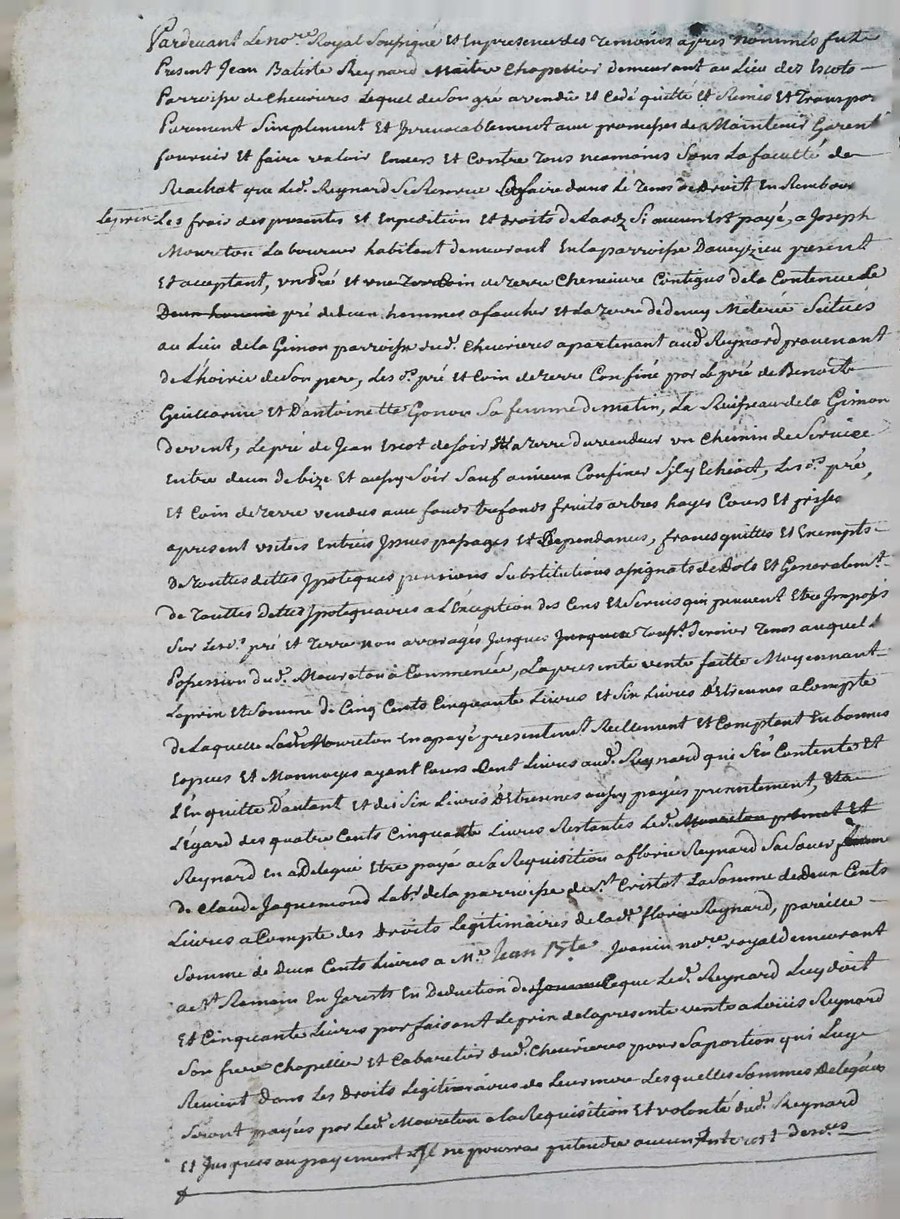 Pardevant Le no.re Royal Soussigné et en presence des temoins apres nommés fut
Present Jean Batiste Reynard Maitre chapellier demeurant au Lieu des Escots
Parroisse de cheurieres Lequel de Son gré a vendu et Cedé quitte et Remis et Transpor
Purement Simplement et Irrevocablement aux promesses de Maintenir Garent
fournir et faire valoir Envers et Contre tous neamoins Sous La faculté de
Reachat que Led. Reynard Se Reserve faire dans Le tems de droit En Rembour
le prix Les frais des presentes et Expedition et droits de Laodz Si aucun Est payé, a Joseph
Moureton Laboureur habitant demeurant En la parroisse Daveyzieu present
Et aceptant, un Pré et un Coin de terre Cheneviere Contigus de la Contenue Le
pré de deux hommes a faucher et La terre de demy Meterée Scitués
au Lieu de la Gimon parroisse dud. Cheurieres apartenant aud. Reynard provenant
de Lhoirie de Son pere, Les d. pré et Coin de terre Confiné par Le pré de Benoit
Guillarme et D'antoinette Gonon Sa femme de matin, La Ruisseau de la Gimon
de vent, Le pré de Jean Escot de Soir et La terre du vendeur un Chemin de Service
Entre deux de bize Et aussy Soir Sauf a mieux Confiner Sil y Echoit, Les d.s pré
et Coin de terre vendus aux fonds trefonds fruits arbres hayes Cours Et prises
apresent usitées Entrées Issues passages et Dependances, francs quittes et Exempts
de touttes dettes Ypoteques pensions Substitutions assignats de Dots Et Generalem.t
de Touttes Dettes Ypotequaires a L'Exception des Cens et Servis qui peuvent Etre Imposés
Sur Lesd. pré et Terre non arreragés Jusques Jusques dernier Tems auquel
Possession dud. Moureton a Commencée, La presente vente faitte Moyennant
Le prix et Somme de Cinq Cents Cinquante Livres et Six Livres d'Etrennes a Compte
de Laquelle Led. Moureton En a payé presentem.t Réellement et Comptent En bonnes
Especes et Monnoyes ayant Cours Cent Livres aud. Reynard qui S'En Contente Et
L'En quitte D'autant et des Six Livres d'Etrennes aussy payés presentement, Et a
L'Egard des quatre Cents Cinquante Livres Restantes Led. Moureton promet Et
Reynard En a Delegué Etre payé a Sa Requisition a florie Reynard Sa Soeur femme
de Claude Jaquemond Lab.r de la parroisse de S.t Cristot La Somme de deux Cents
Livres a Compte des Droits Legitimaires de lad.e florie Reynard, pareille
Somme de deux Cents Livres a M.e Jean B.te Joanin no.re royal demeurant
a S.t Romain En Jarests En Deduction de ce que Led. Reynard Luy doit
Et Cinquante Livres parfaisant Le prix de la presente vente a Loüis Reynard
Son frere Chapellier Et Cabaretier dud. Cheurieres pour Sa portion qui Luy
Revient dans Les Droits Legitimaires de Leur mere Lesquelles Sommes Deleguées
Seront payées par Led. Moureton a la Requisition Et volonté dud. Reynard
Et Jusques au payement Il ne pourra pretendre aucun Interest des